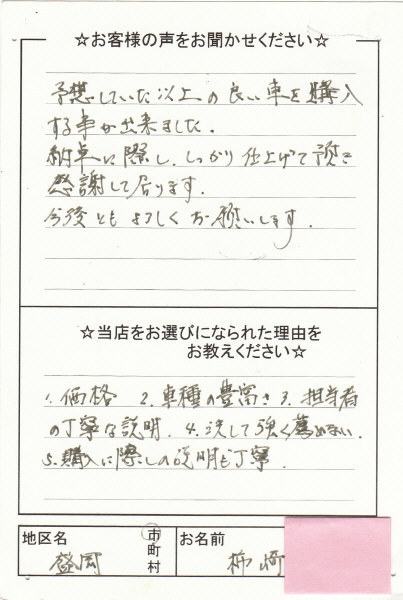 ☆お客様の声をお聞かせください☆
予想していた以上の良い車を購入
する事が出来ました。
納車に際し、しっかり仕上げて頂き
感謝して居ります。
今後ともよろしくお願いします。
☆当店をお選びになられた理由を
お教えください☆
1.価格 2.車種の豊富さ 3.担当者
の丁寧な説明. 4.決して強く薦めない.
5.購入に際しの説明も丁寧.
地区名 盛岡 市町村 お名前 柿崎